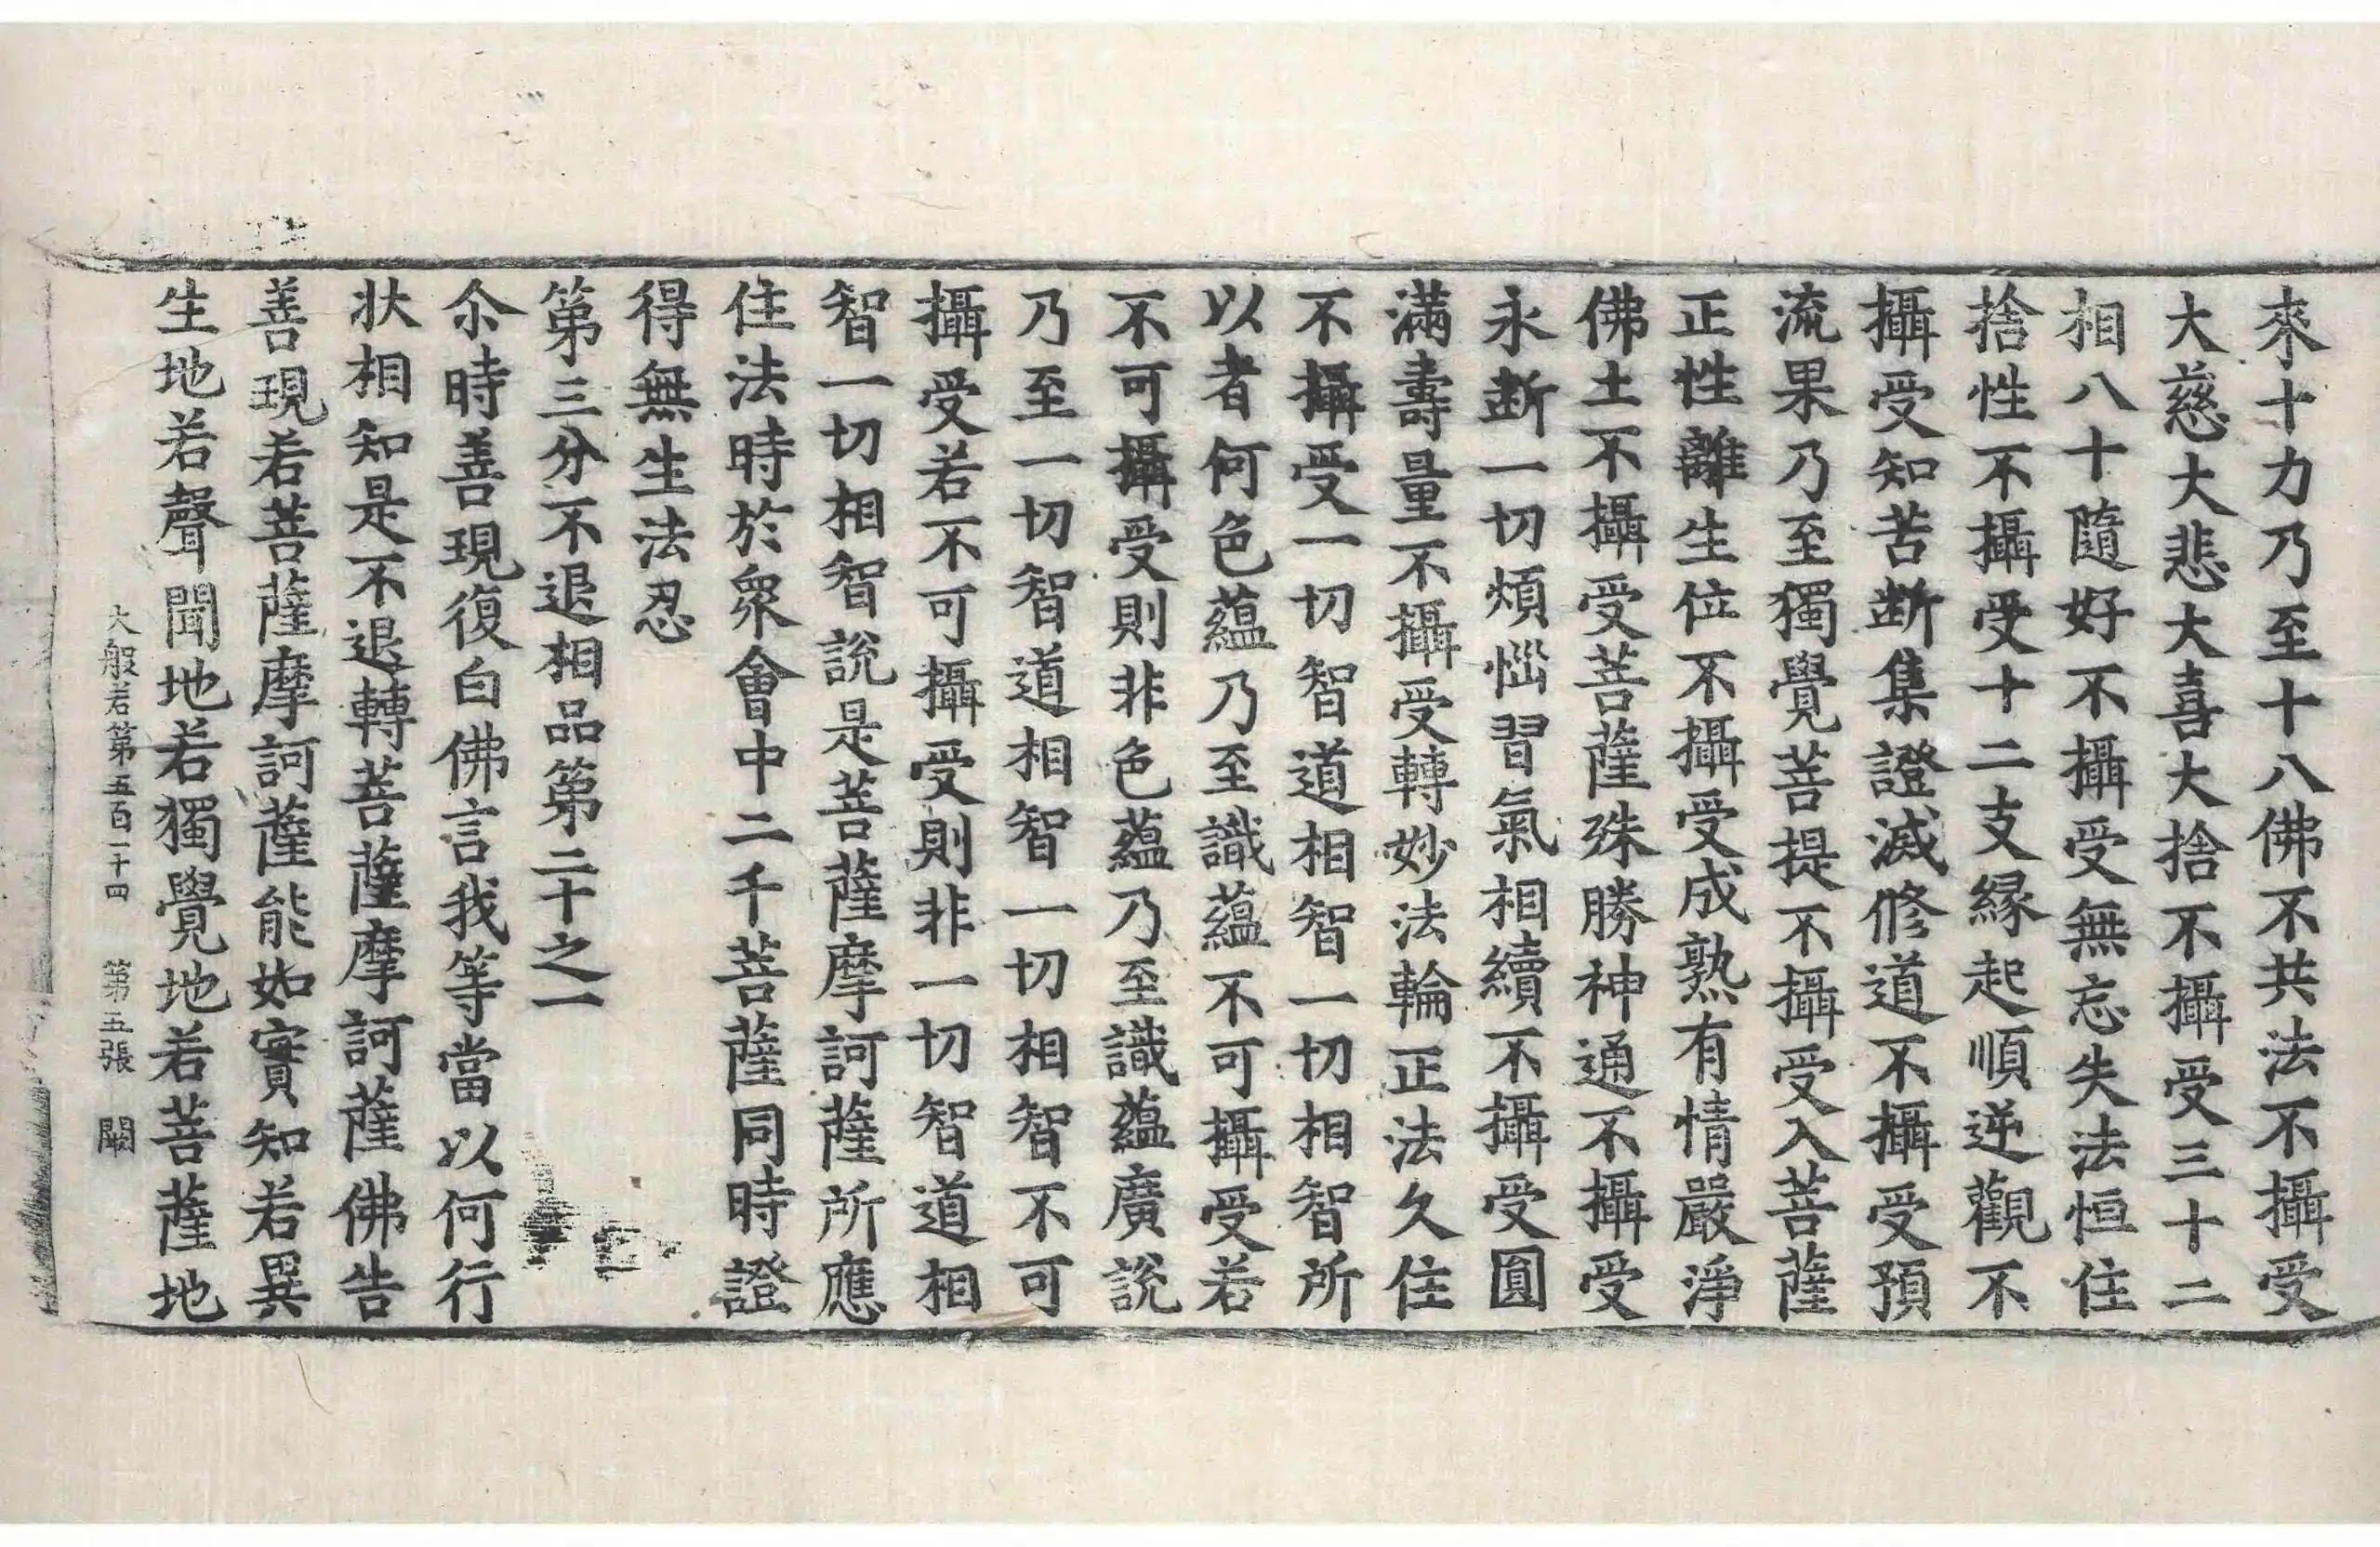 來十力乃至十八佛不共法不攝受
大慈大悲大喜大捨不攝受三十二
相八十隨好不攝受無忘失法恒住
捨性不攝受十二支緣起順逆觀不
攝受知苦斷集證滅修道不攝受預
流果乃至獨覺菩提不攝受入菩薩
正性離生位不攝受成熟有情嚴淨
佛土不攝受菩薩殊勝神通不攝受
永斷一切煩惱習氣相續不攝受圓
滿壽量不攝受轉妙法輪正法久住
不攝受一切智道相智一切相智所
以者何色蘊乃至識蘊不可攝受若
不可攝受則非色蘊乃至識蘊廣說
乃至一切智道相智一切相智不可
攝受若不可攝受則非一切智道相
智一切相智說是菩薩摩訶薩所應
住法時於衆會中二千菩薩同時證
得無生法忍
第三分不退相品第二十之一
尒時善現復白佛言我等當以何行
狀相知是不退轉菩薩摩訶薩佛告
善現若菩薩摩訶薩能如實知若異
生地若聲聞地若獨覺地若菩薩地
大般若第五百一十四 第五張 闕